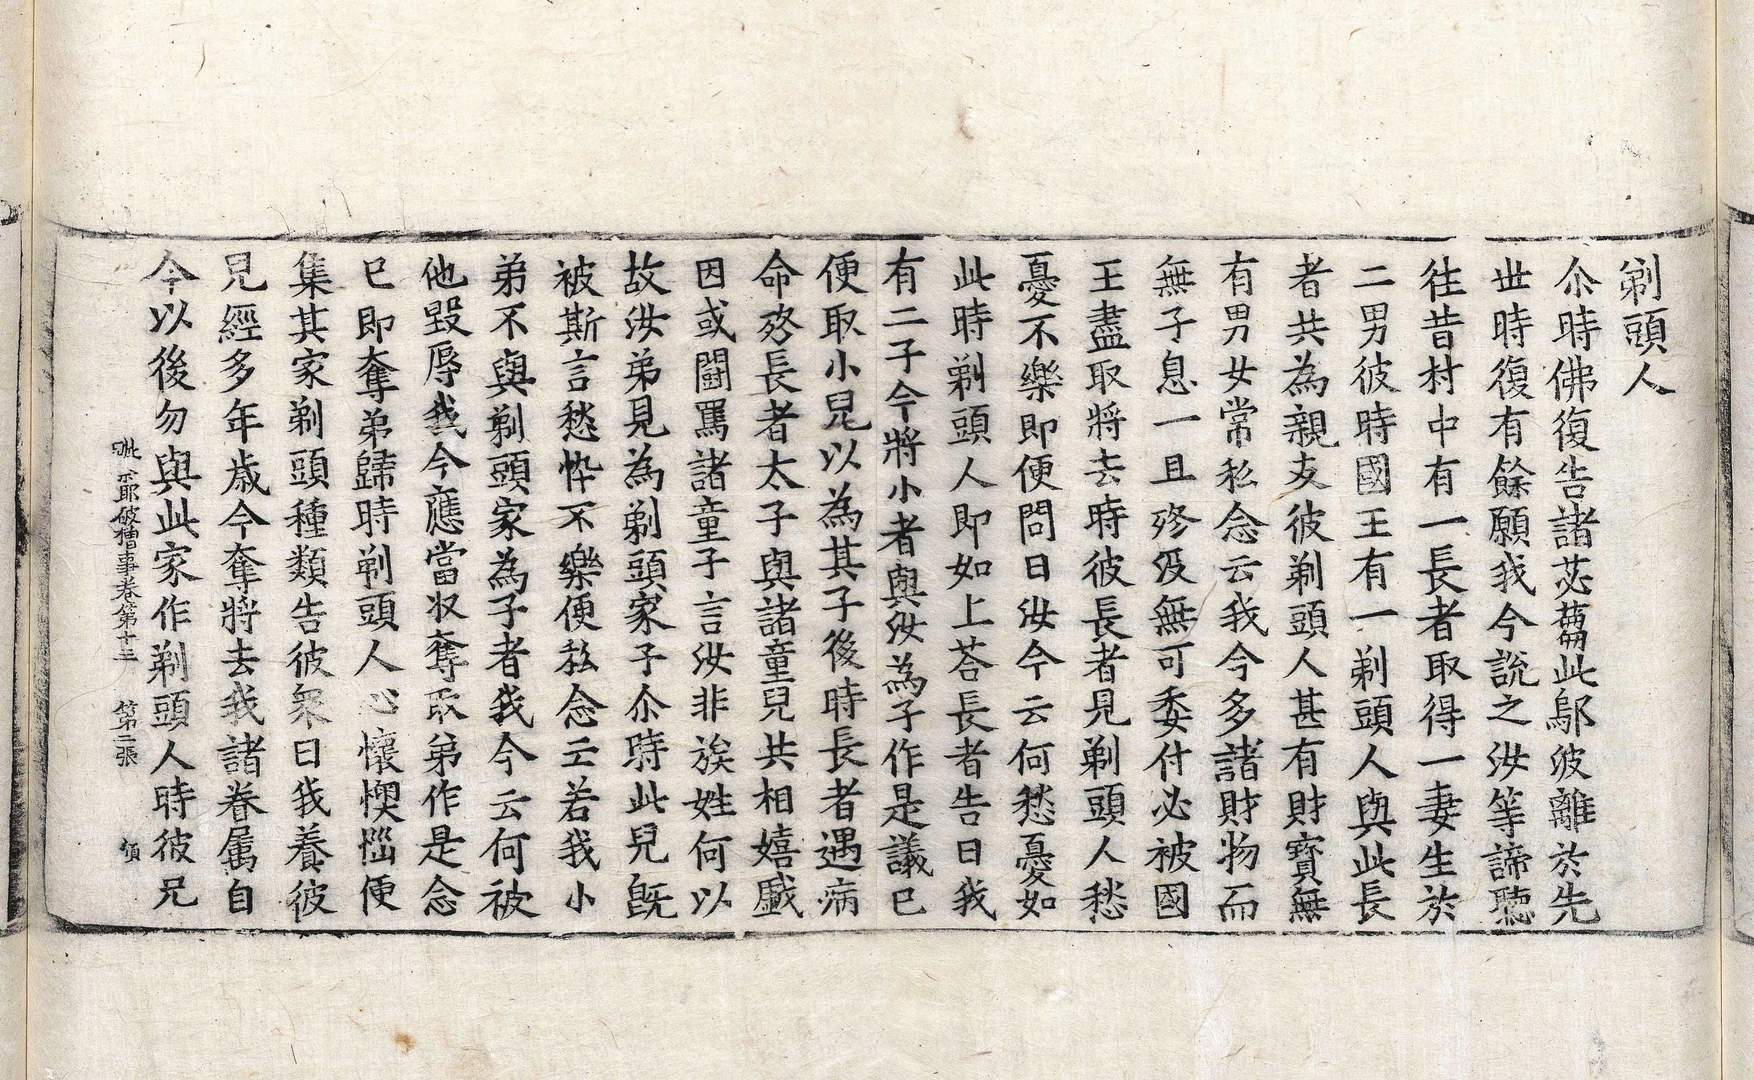 剃頭人
尒時佛復告諸苾蒭此鄔波離於先
世時復有餘願我今說之汝等諦聽
往昔村中有一長者取得一妻生於
二男彼時國王有一剃頭人與此長
者共為親友彼剃頭人甚有財寶無
有男女常私念云我今多諸財物而
無子息一旦殁没無可委付必被國
王盡取將去時彼長者見剃頭人愁
憂不樂即便問曰汝今云何愁憂如
此時剃頭人即如上荅長者告曰我
有二子今將小者與汝為子作是議已
便取小兒以為其子後時長者遇病
命殁長者太子與諸童兒共相嬉戲
因或鬪罵諸童子言汝非族姓何以
故汝弟見為剃頭家子尒時此兒旣
被斯言愁忰不樂便私念云若我小
弟不與剃頭家為子者我今云何被
他毀辱我今應當収奪取弟作是念
已即奪弟歸時剃頭人心懷懊惱便
集其家剃頭種類告彼衆曰我養彼
兒經多年歲今奪將去我諸眷屬自
今以後勿與此家作剃頭人時彼兄
毗柰耶破僧事卷第十三 第二張 傾